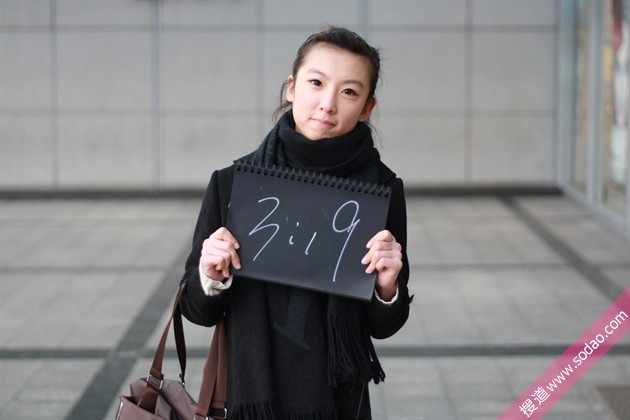 3:19
搜道www.sodao.com